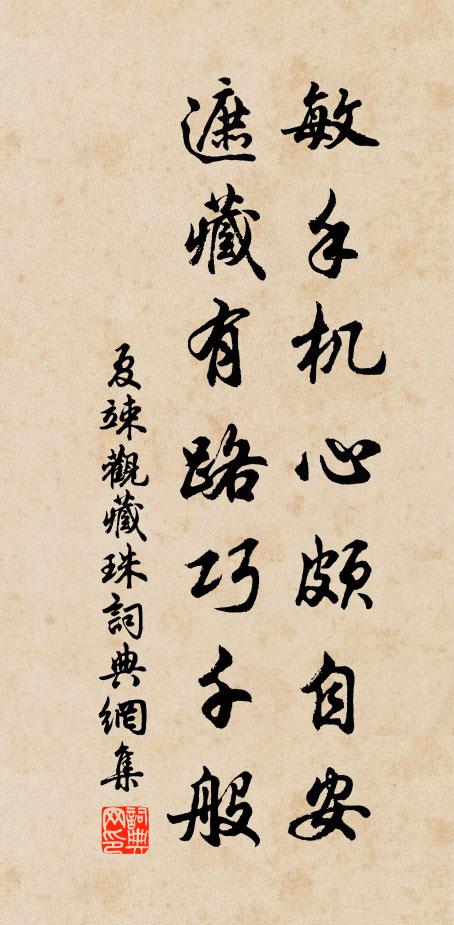 敏手机心頗自安
遮藏有路巧千般
夏竦觀藏珠詞典網集
詞典网印